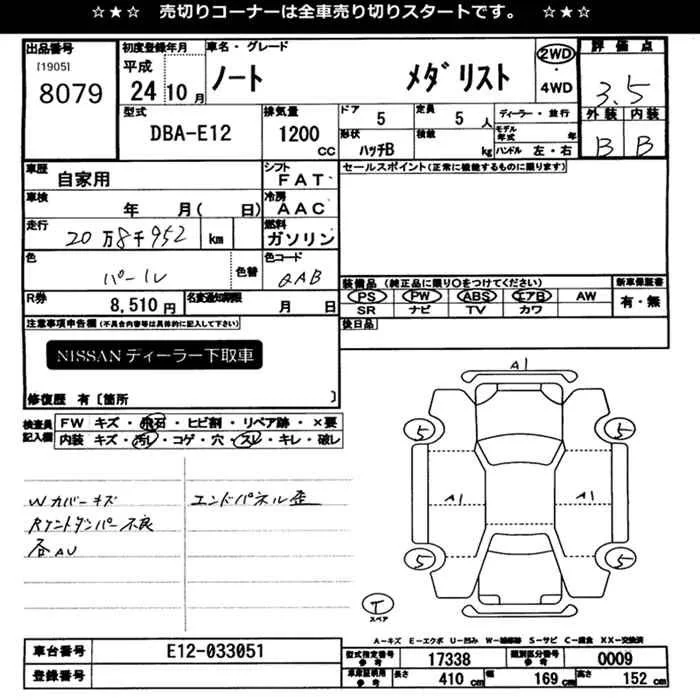 ☆★☆ 売切りコーナーは全車売り切りスタートです。 ☆★☆
出品番号 初度登録年月 車名・グレード 2WD 評価点
[1905] 平成 ノート メダリスト ・
8079 24 10月 4WD 3.5
型式 排気量 ドア 5 定員 5人 ディーラー・並行 外装 内装
DBA-E12 1200cc 形状 ハッチB 積載 kg モデル年式 年 B B
ハンドル 左・右
車歴 自家用 シフト FAT セールスポイント(正常に機能するものに限ります)
車検 年 月( 日) 冷房 AAC
走行 20万8千952 km 燃料 ガソリン
色 パール 色替 色コード QAB
装備品(純正品に限り○をつけてください) 新車保証書
R券 8,510円 名変通知期限 月 日 PS PW ABS エアB AW 有・無
SR ナビ TV カワ
注意事項申告欄(不具合内容等は具体的に記入して下さい) 後日品
NISSANディーラー下取車
修復歴 有〔箇所 〕
検査員記入欄 FW キズ・飛石・ヒビ割・リペア跡・×要
内装 キズ・汚レ・コゲ・穴・スレ・キレ・破レ
A1
5 5
Wカバーキズ エンドパネル歪
A1 A1
各AU
5 5
T
スペア
A-キズ E-エクボ U-凹み W-補修跡 S-サビ C-腐食 XX-交換済
車台番号 E12-033051 型式指定番号 参考 17338 類別区分番号 参考 0009
登録番号 車庫証明用 参考 長さ 410cm 幅 169cm 高さ 152cm